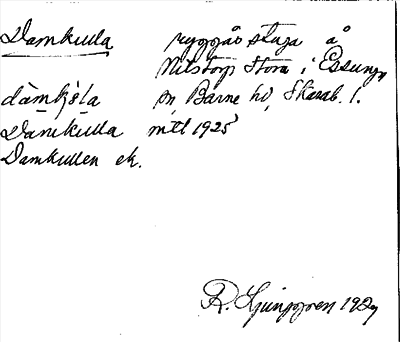 Damkulla ryggåsstuga å
Nilstorp Stora i Essunga
dàmkò̀la sn Barne hd, Skarab. l.
Damkulla mtl 1925
Damkullen ek.
R. Ljunggren 1929